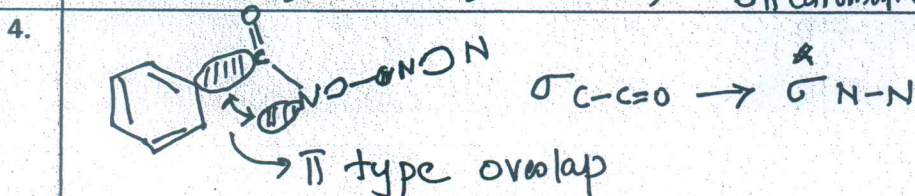 4.
O
C
N N N
σ C-C=O → σ* N-N
→ π type overlap